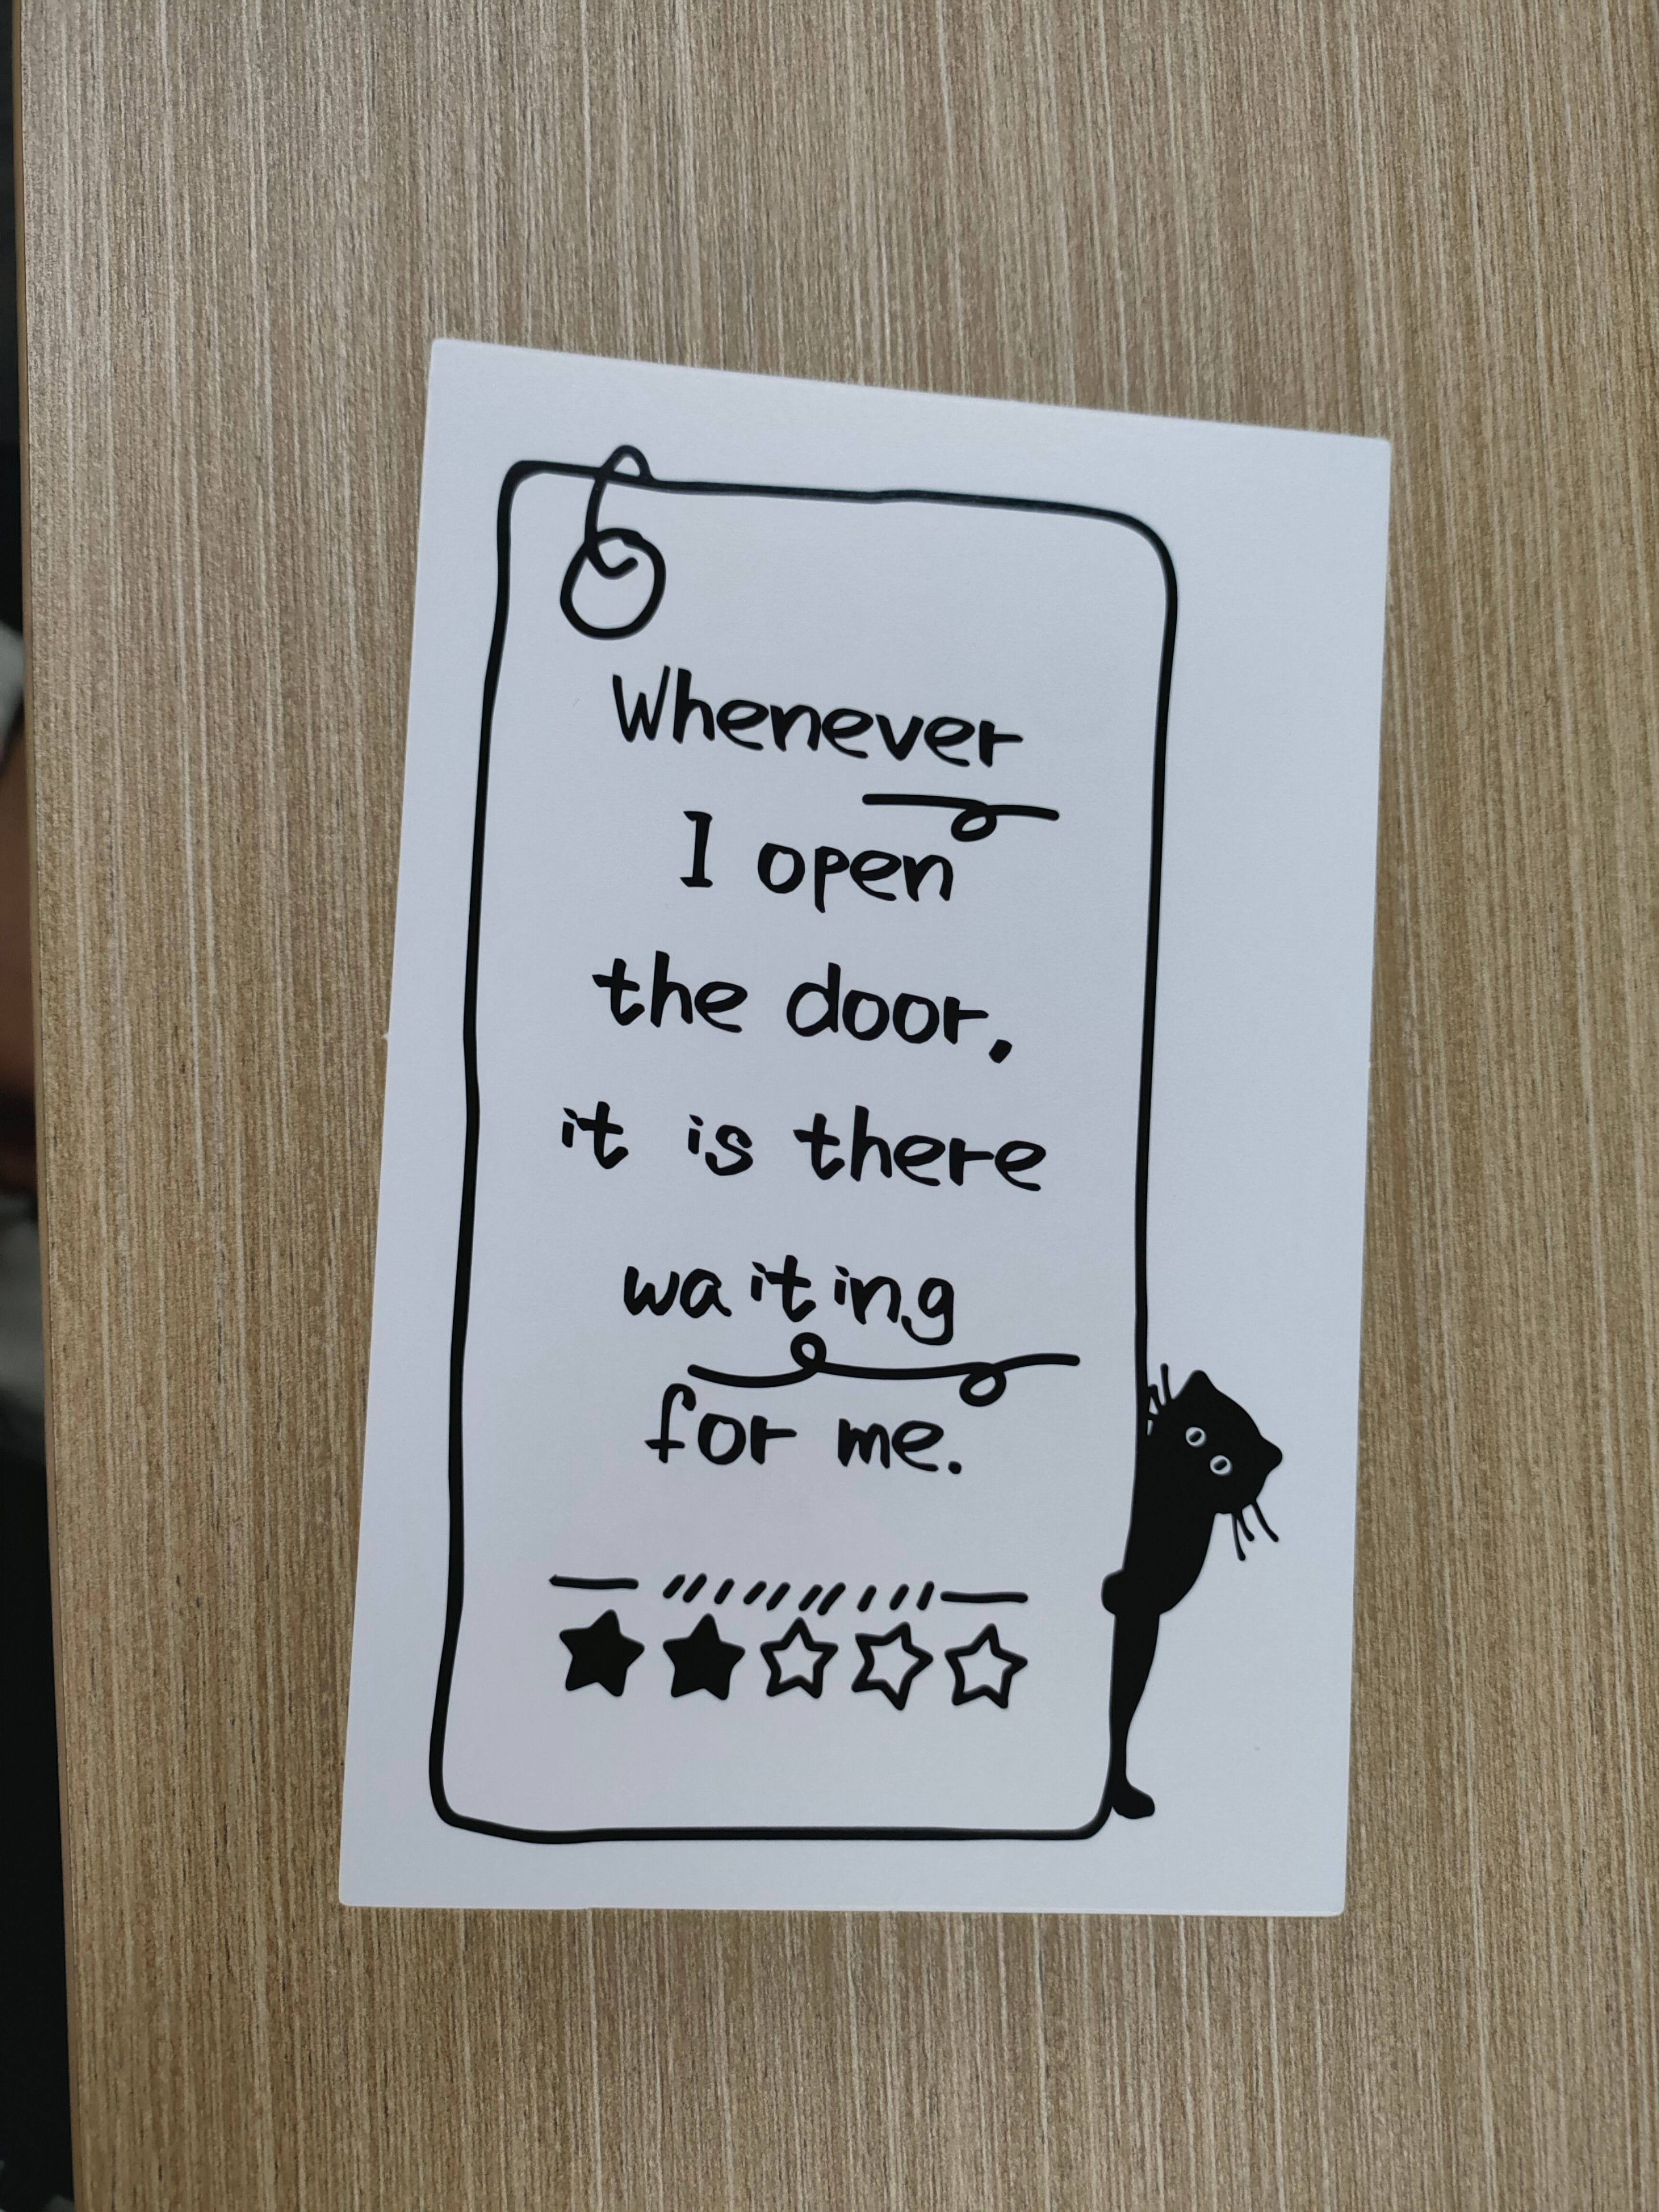 Whenever
I open
the door,
it is there
waiting
for me.